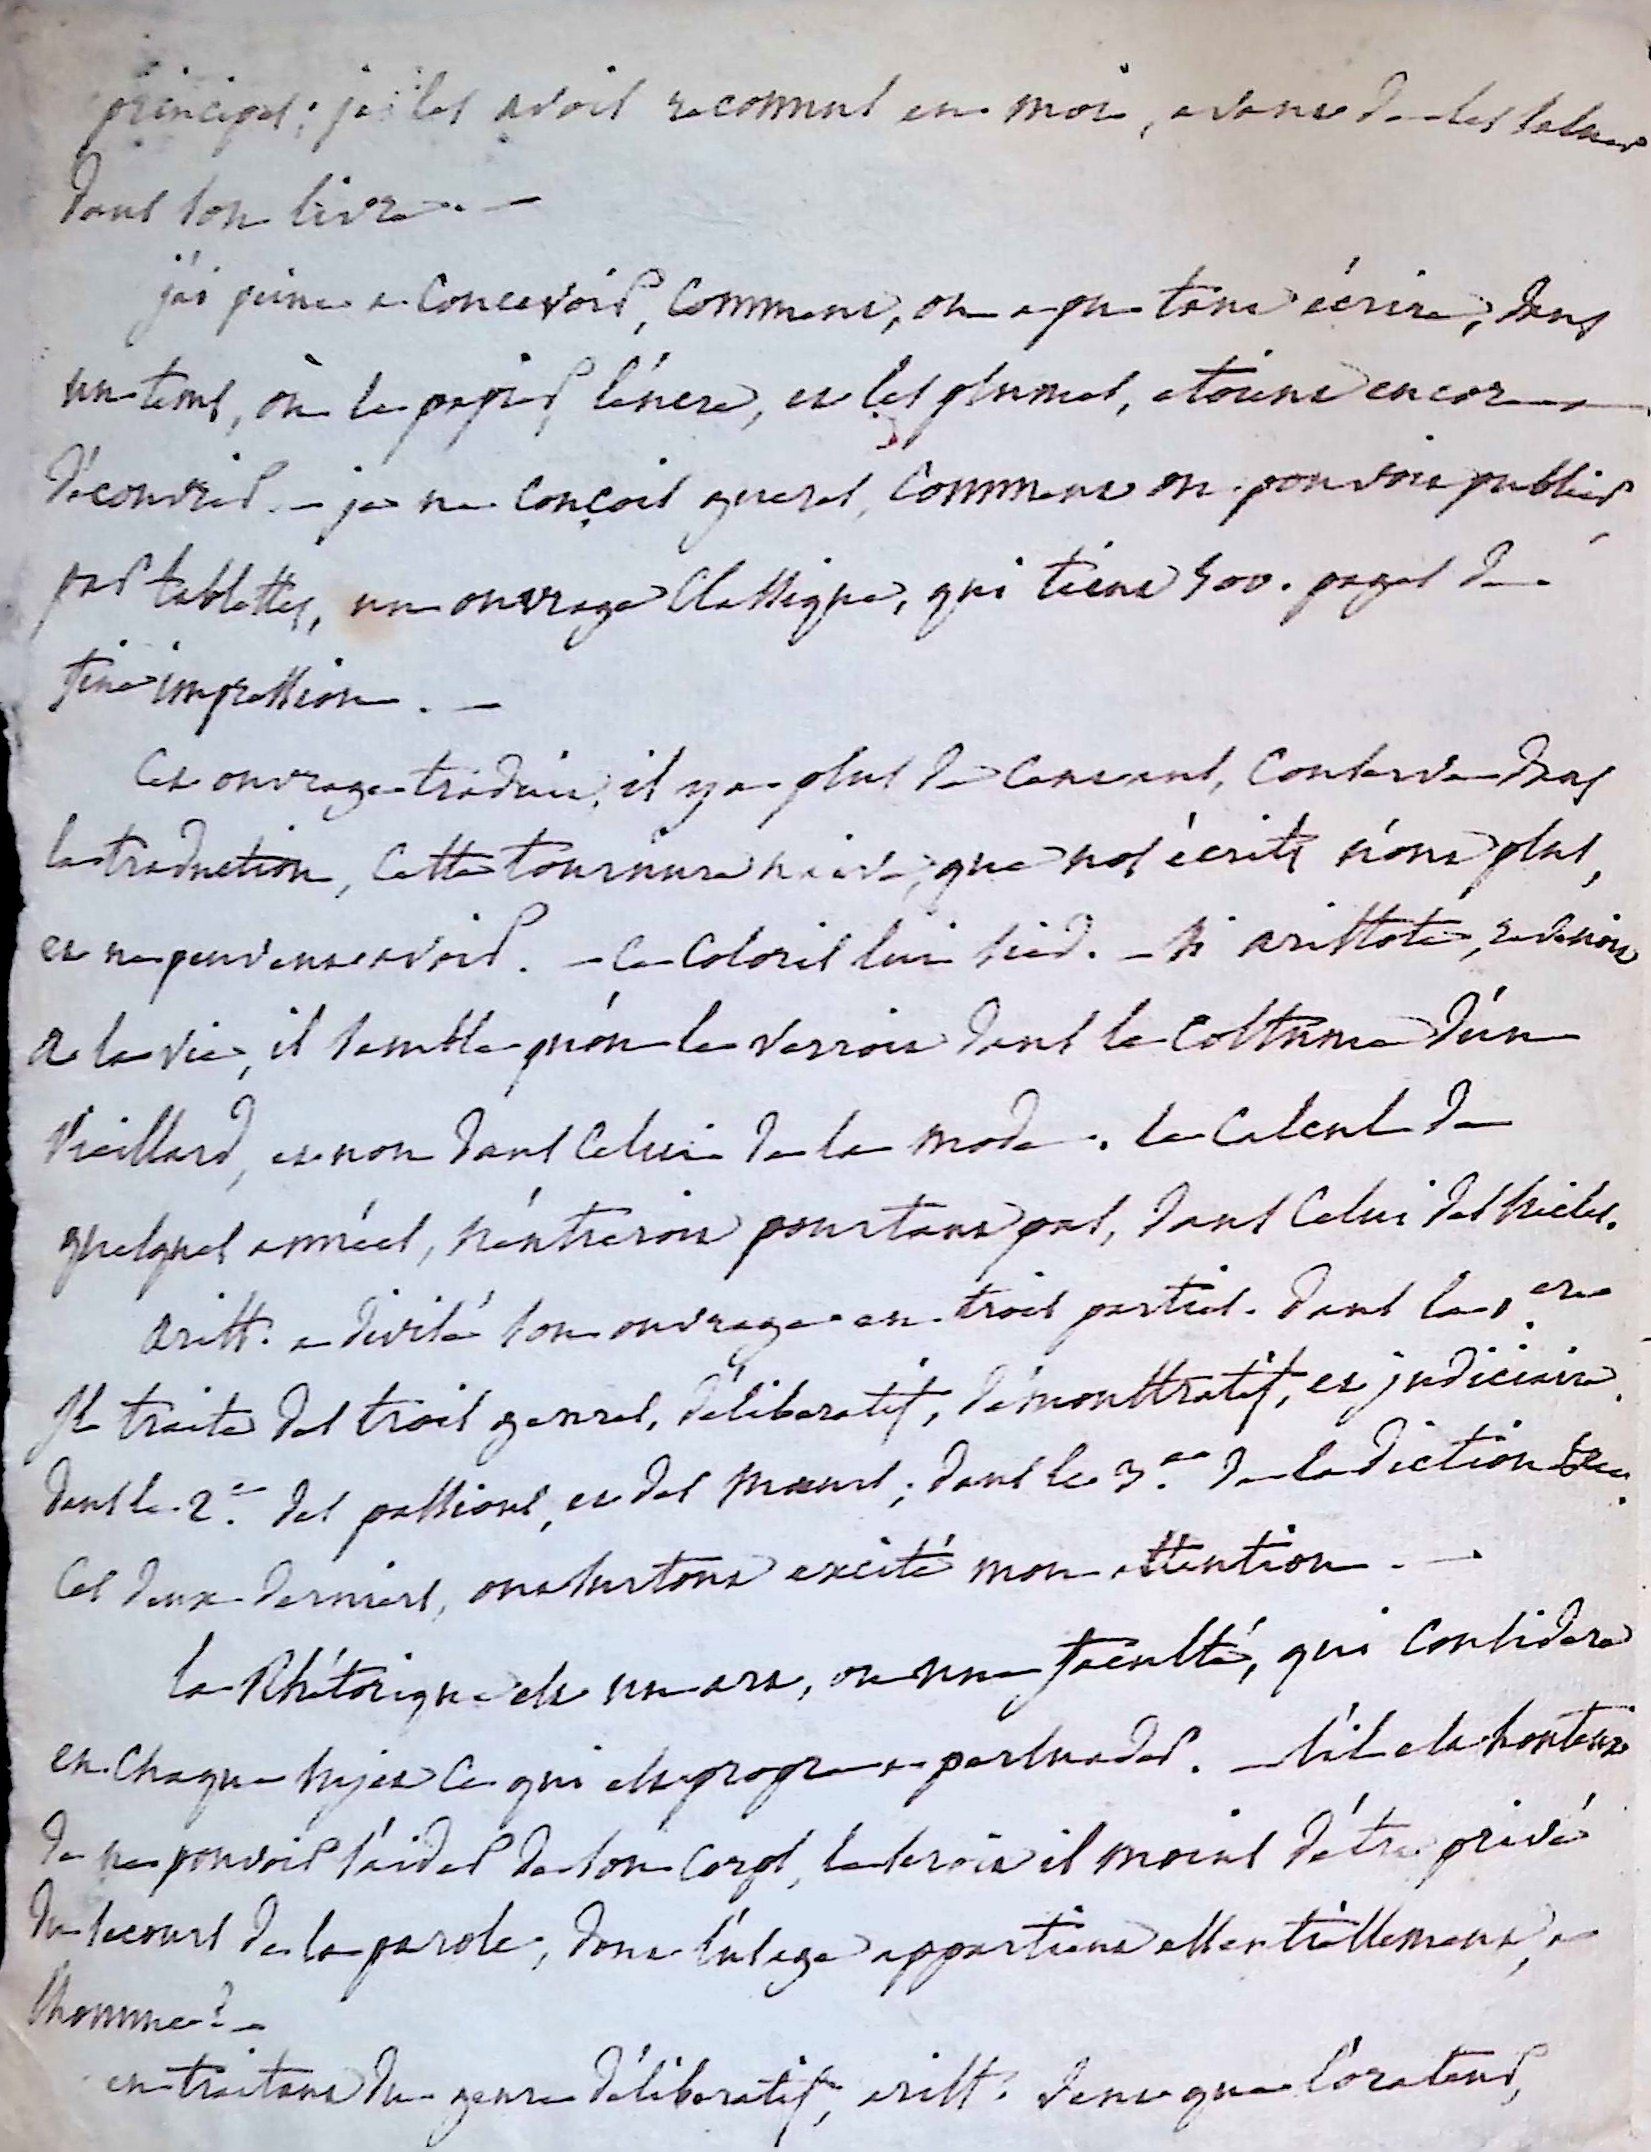 principes; je les avois reconnus en moi, avant de les saluer
dans son livre. —
j'ai peine a concevoir, comment, on a pu tant écrire, dans
un tems, où le papier, l'encre, et les plumes, etoient encore a
découvrir. — je ne conçois gueres, comment on pouvoit publier
par tablettes, un ouvrage classique, qui tient 500. pages de
fine impression. —
Cet ouvrage traduit, il y a plus de cent ans, conserve dans
la traduction, cette tournure naïve, que nos écrits n'ont plus,
et ne peuvent avoir. — ce coloris lui sied. — si aristote, revenoit
a la vie, il semble qu'on le verroit dans le costume d'un
vieillard, et non dans celui de la mode. le calcul de
quelques années, n'entreroit pourtant pas, dans celui des siècles.
arist. a divisé son ouvrage en trois parties. dans la 1.ere
Il traite des trois genres, déliberatif, démonstratif, et judiciaire.
dans le 2.e des passions, et des mœurs; dans le 3.e de la diction
Ces deux derniers, ont surtout excité mon attention. —
la Rhétorique est un art, ou une faculté, qui considere
en chaque sujet ce qui est propre a persuader. — s'il est honteux
de ne pouvoir s'aider de son corps, le seroit il moins d'être privé
du secours de la parole, dont l'usage appartient essentiellement, a
l'homme? —
en traitant du genre déliberatif, arist. veut que l'orateur,